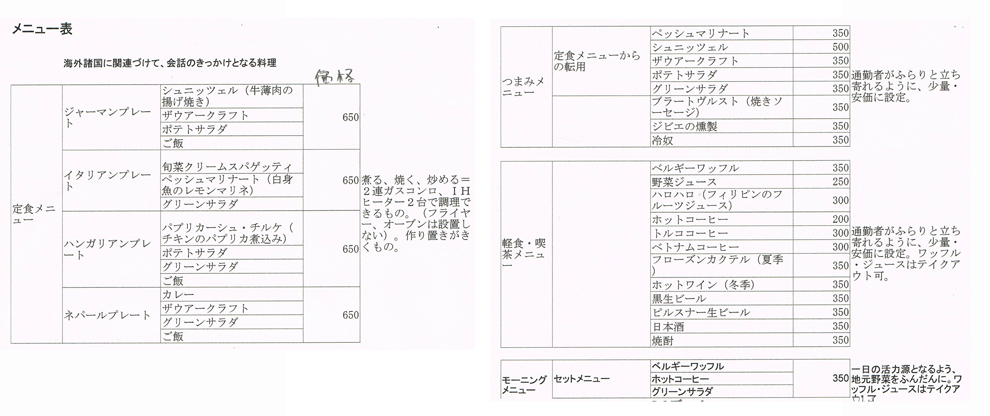 メニュー表
海外諸国に関連づけて、会話のきっかけとなる料理
価格
定食メニ
ュー
ジャーマンプレー
ト
シュニッツェル（牛薄肉の
揚げ焼き）
ザウアークラフト
ポテトサラダ
ご飯
650
イタリアンプレー
ト
旬菜クリームスパゲッティ
ペッシュマリナート（白身
魚のレモンマリネ）
グリーンサラダ
650
ハンガリアンプレ
ート
パプリカーシュ・チルケ（
チキンのパプリカ煮込み）
ポテトサラダ
グリーンサラダ
ご飯
650
ネパールプレート
カレー
ザウアークラフト
グリーンサラダ
ご飯
650
煮る、焼く、炒める＝
２連ガスコンロ、ＩＨ
ヒーター２台で調理で
きるもの。（フライヤ
ー、オーブンは設置し
ない）。作り置きがき
くもの。
つまみメ
ニュー
定食メニューから
の転用
ペッシュマリナート 350
シュニッツェル 500
ザウアークラフト 350
ポテトサラダ 350
グリーンサラダ 350
ブラートヴルスト（焼きソ
ーセージ） 350
ジビエの燻製 350
冷奴 350
通勤者がふらりと立ち
寄れるように、少量・
安価に設定。
軽食・喫
茶メニュ
ー
ベルギーワッフル 350
野菜ジュース 250
ハロハロ（フィリピンのフ
ルーツジュース） 300
ホットコーヒー 200
トルココーヒー 300
ベトナムコーヒー 300
フローズンカクテル（夏季
） 350
ホットワイン（冬季） 350
黒生ビール 350
ピルスナー生ビール 350
日本酒 350
焼酎 350
通勤者がふらりと立ち
寄れるように、少量・
安価に設定。ワッフル
・ジュースはテイクア
ウト可。
モーニング
メニュー
セットメニュー
ベルギーワッフル
ホットコーヒー
グリーンサラダ
350
一日の活力源となるよう、
地元野菜をふんだんに。ワ
ッフル・ジュースはテイクア